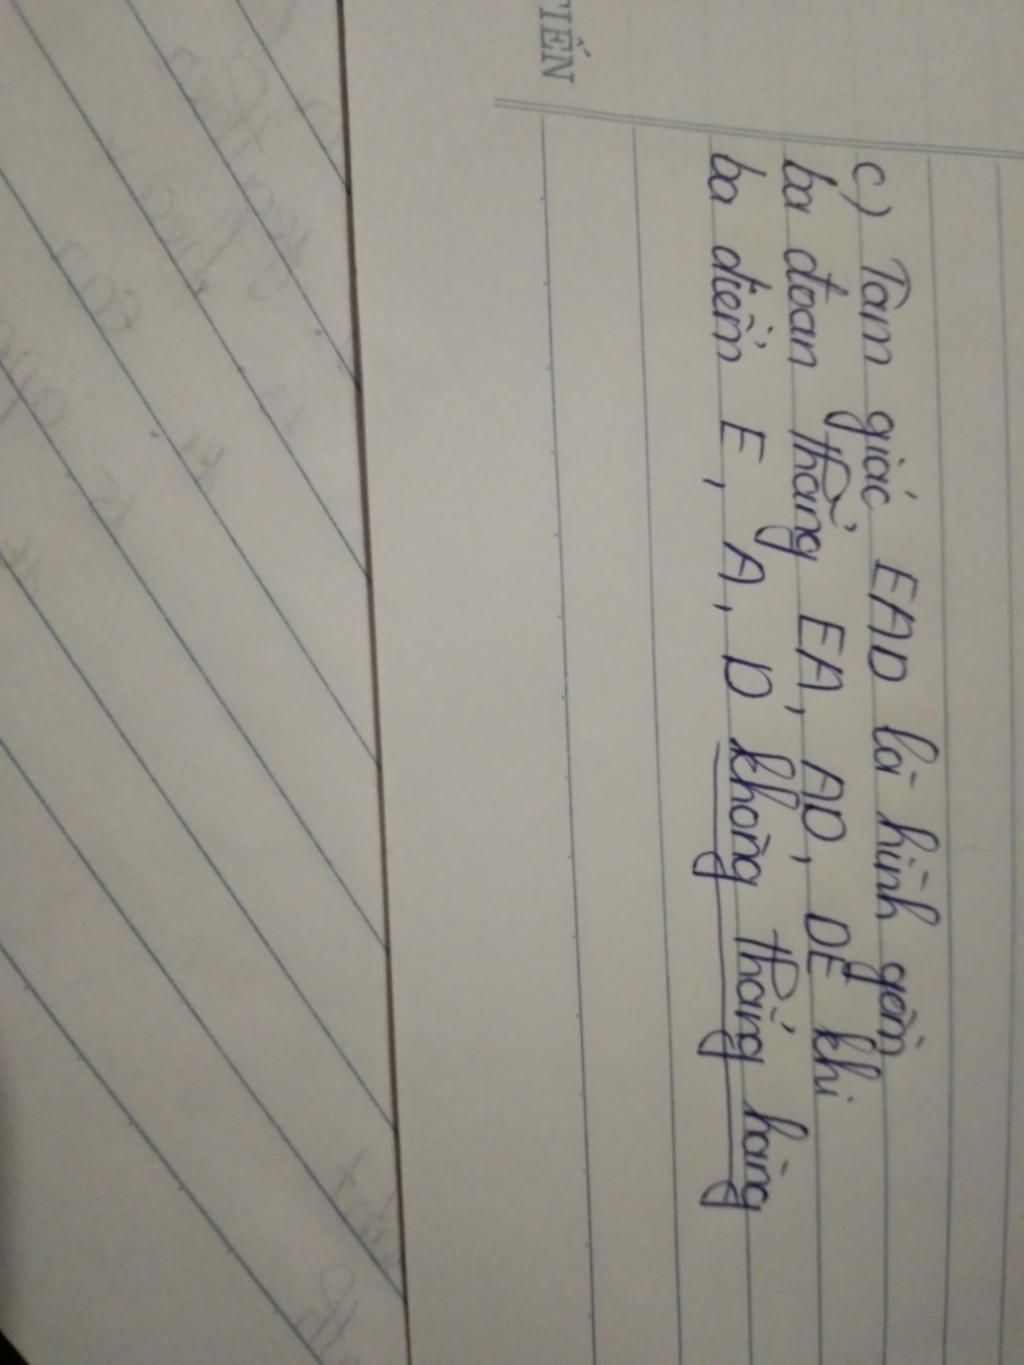 TIẾN
c) Tam giác EAD là hình gồm
ba đoan thẳng EA, AD, DE khi
ba điểm E, A, D không thẳng hàng